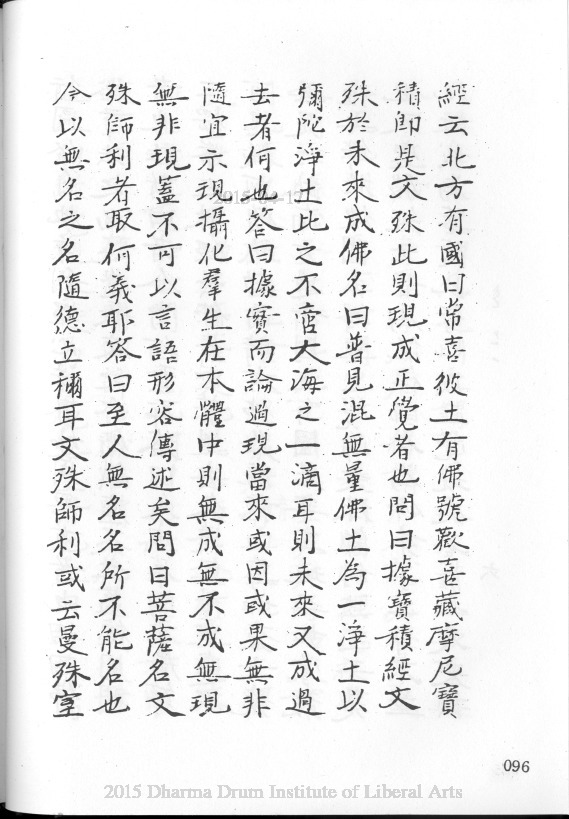 經云北方有國曰常喜彼土有佛號歡喜藏摩尼寶
積即是文殊此則現成正覺者也問曰據寶積經文
殊於未來成佛名曰普見混無量佛土為一淨土以
彌陀淨土比之不啻大海之一滴耳則未來又成過
去者何也答曰據實而論過現當來或因或果無非
隨宜示現攝化羣生在本體中則無成無不成無現
無非現蓋不可以言語形容傳述矣問曰菩薩名文
殊師利者取何義耶答曰至人無名名所不能名也
今以無名之名隨德立稱耳文殊師利或云曼殊室
096
2015-04-17
2015 Dharma Drum Institute of Liberal Arts